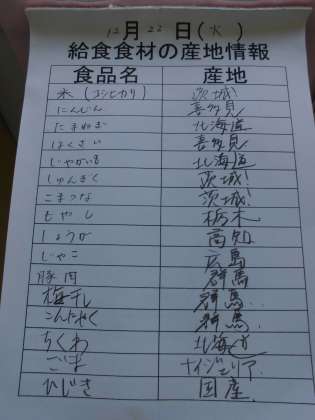 12月22日(火)
給食食材の産地情報
食品名 産地
米(コシヒカリ) 茨城
にんじん 喜多見
たまねぎ 北海道
はくさい 喜多見
じゃがいも 北海道
しゅんぎく 茨城
こまつな 茨城
もやし 栃木
しょうが 高知
じゃこ 広島
豚肉 群馬
梅干し 群馬
こんにゃく 群馬
ちくわ 北海道
ごま ナイジェリア
ひじき 国産